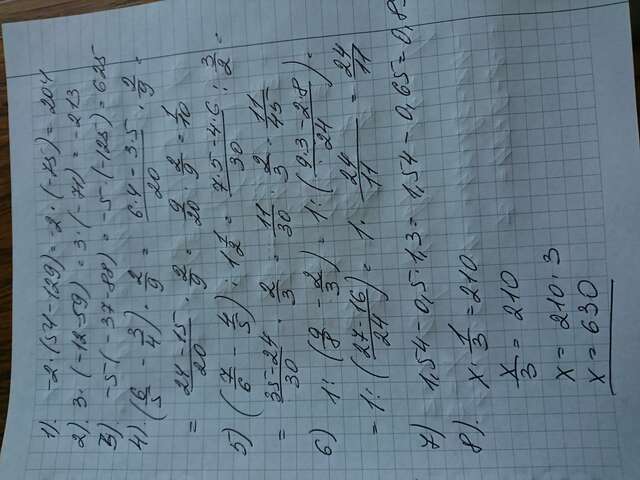 1). -2·(54-129)=-2·(-75)=204
2) 3·(-12-59)=3·(-71)=-213
3) -5(-37-88)=-5(-125)=625
4) (6/5 - 3/4)·2/9 = (6·4-3·5)/20 · 2/9 =
= (24-15)/20 · 2/9 = 9/20 · 2/9 = 1/10
5) (7/6 - 4/5) : 1 1/2 = (7·5-4·6)/30 : 3/2 =
= (35-24)/30 · 2/3 = 11/30 · 2/3 = 11/45
6) 1:(9/8 - 2/3) = 1:((9·3-2·8)/24) =
= 1:((27-16)/24) = 1: 24/11 = 24/11
7) 1,54-0,5·1,3=1,54-0,65=0,8
8). x·1/3=210
x/3=210
x=210·3
x=630